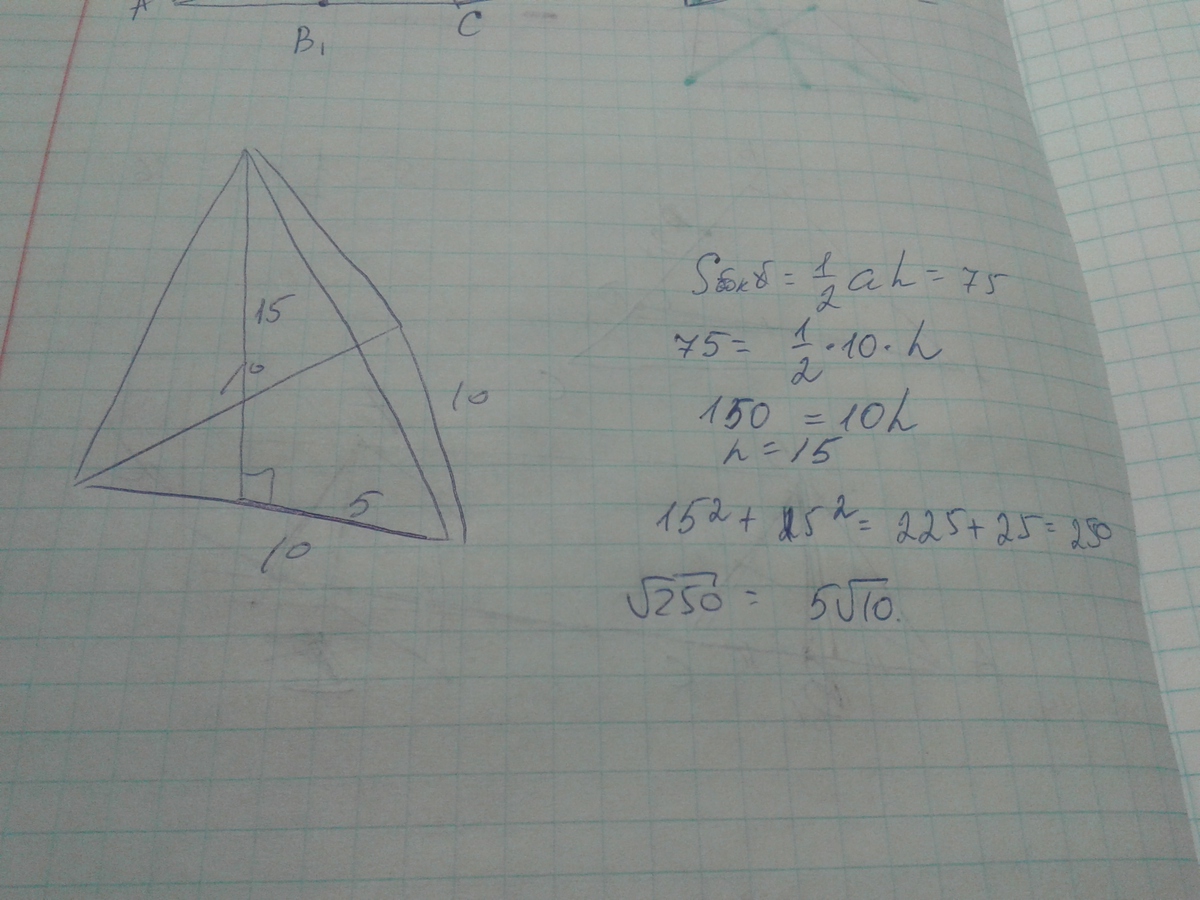 A
B₁
C
15
10
10
5
10
Sбок = 1/2 ah = 75
75 = 1/2 · 10 · h
150 = 10h
h = 15
15² + 5² = 225 + 25 = 250
√250 = 5√10.